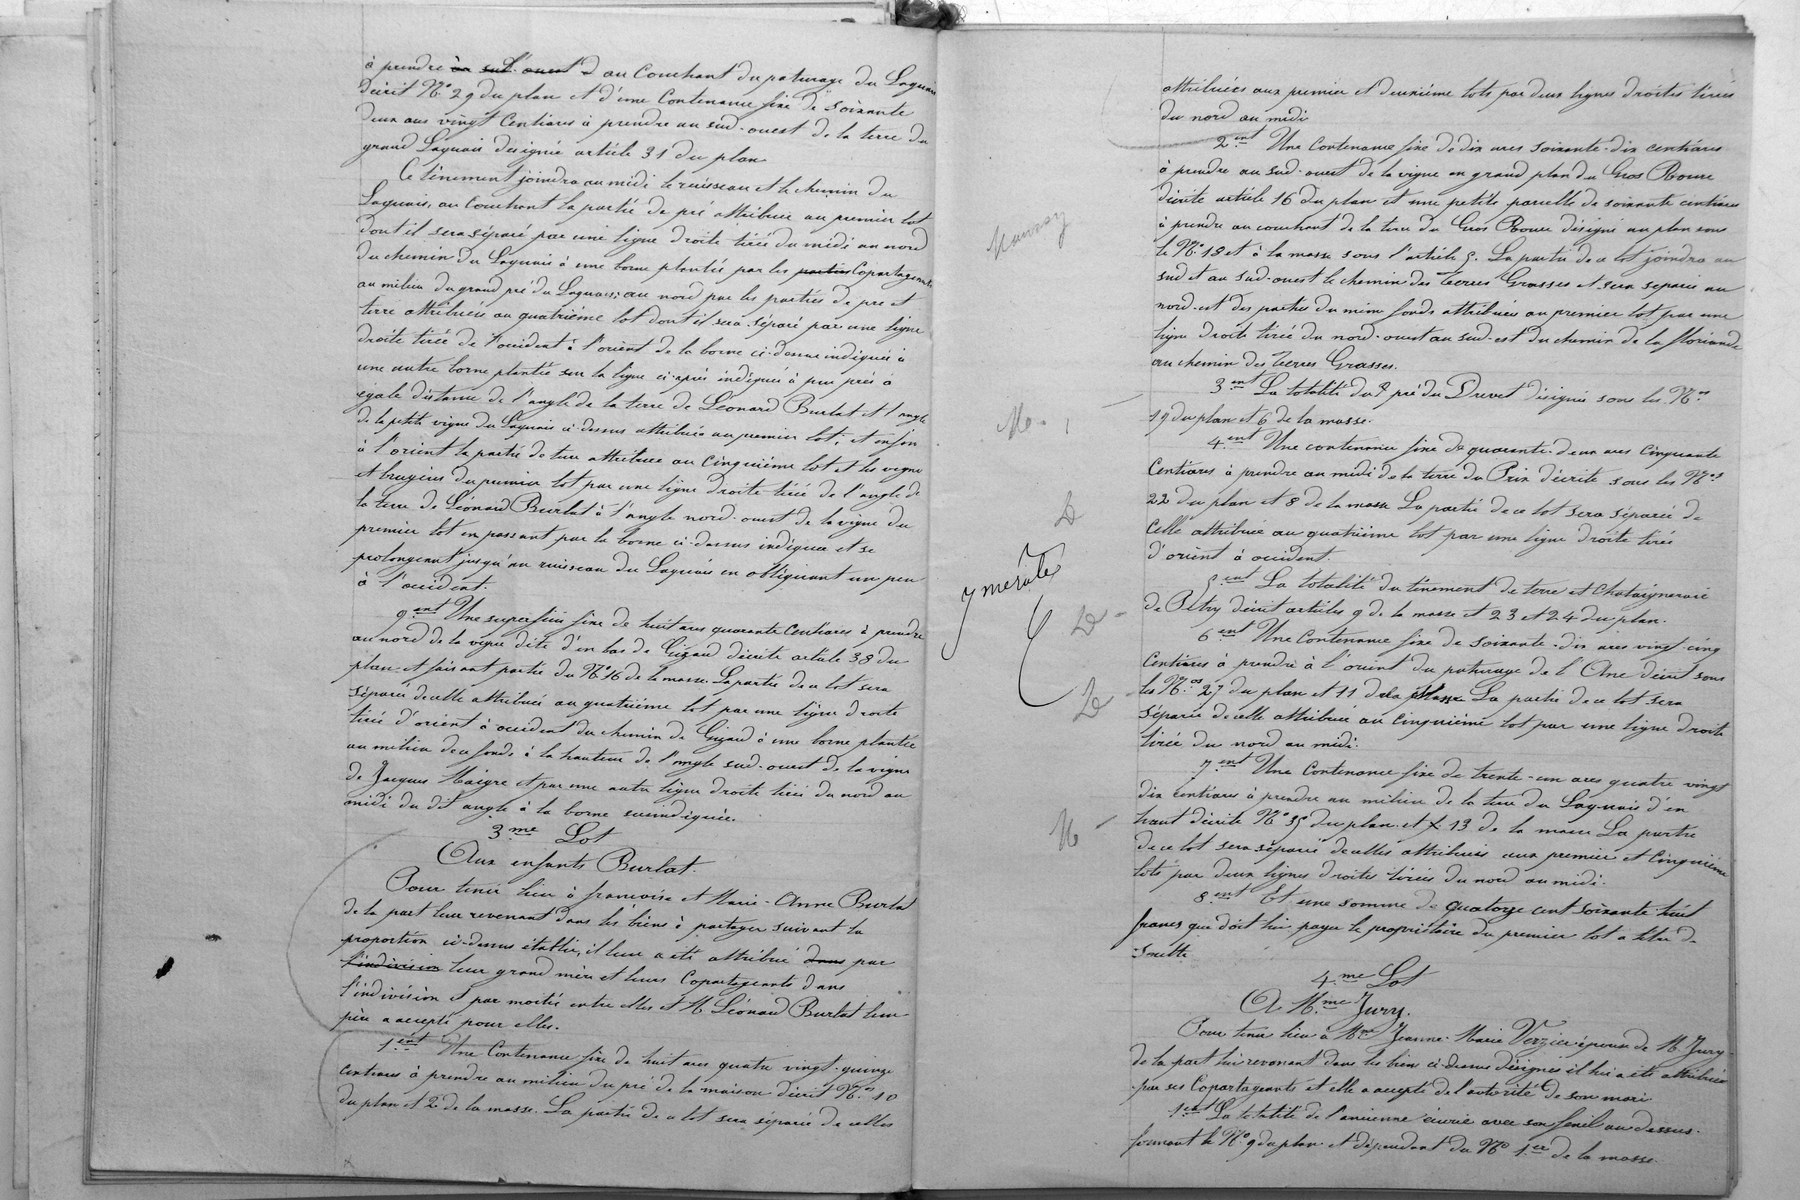 à prendre au sud-ouest d au Couchant du paturage du Laguais
décrit N° 29 du plan et d'une Contenance fixe de soixante
deux ares vingt Centiares à prendre au sud-ouest de la terre du
grand Laguais désignée article 31 du plan
Ce tènement joindra au midi le ruisseau et le chemin du
Laguais, au Couchant la partie de pré attribuée au premier lot
dont il sera séparé par une ligne droite tirée du midi au nord
du chemin du Laguais à une borne plantée par les parties Copartageants
au milieu du grand pré du Laguais; au nord par les parties de pré et
terre attribuées au quatrième lot dont il sera séparé par une ligne
droite tirée de l'occident à l'orient de la borne ci-dessus indiquée à
une autre borne plantée sur la ligne ci-après indiquée à peu près à
égale distance de l'angle de la terre de Léonard Burlat et l'angle
de la petite vigne du Laguais ci-dessus attribuée au premier lot; et enfin
à l'orient la partie de terre attribuée au Cinquième lot et les vigne
et bruyères du premier lot par une ligne droite tirée de l'angle de
la terre de Léonard Burlat à l'angle nord-ouest de la vigne du
premier lot en passant par la borne ci-dessus indiquée et se
prolongeant jusqu'au ruisseau du Laguais en obliquant un peu
à l'occident.
9ent Une superficie fixe de huit ares quarante Centiares à prendre
au nord de la vigne dite d'en bas de Gizard décrite article 38 du
plan et faisant partie du N° 16 de la masse. La partie de ce lot sera
séparée de celle attribuée au quatrième lot par une ligne droite
tirée d'orient à occident du chemin de Gizard à une borne plantée
au milieu de ce fonds à la hauteur de l'angle sud-ouest de la vigne
de Jacques Maigre et par une autre ligne droite tirée du nord au
midi du dit angle à la borne susindiquée.
3me Lot
Aux enfants Burlat.
Pour tenir lieu à françoise et Marie-Anne Burlat
de la part leur revenant dans les biens à partager suivant la
proportion ci-dessus établie, il leur a été attribué dans par
l'indivision leur grand mère et leurs Copartageants dans
l'indivision et par moitié entre elles et M Léonard Burlat leur
père a accepté pour elles.
1ent Une Contenance fixe de huit ares quatre vingt-quinze
centiares à prendre au milieu du pré de la maison décrit Nos 10
du plan et 2 de la masse. La partie de ce lot sera séparée de celles
attribuées aux premier et deuxième lots par deux lignes droites tirées
du nord au midi
2ent Une Contenance fixe de dix ares soixante-dix centiares
à prendre au sud-ouest de la vigne en grand plan du Gros Roure
décrite article 16 du plan et une petite parcelle de soixante centiares
à prendre au couchant de la terre du Gros Roure désigné au plan sous
le N° 18 et à la masse sous l'article 5. La partie de ce lot joindra au
sud et au sud-ouest le chemin des Terres Grasses et sera séparée au
nord-est des parties du même fonds attribuées au premier lot par une
ligne droite tirée du nord-ouest au sud-est du chemin de la
au chemin des Terres Grasses.
3ent La totalité du pré du Drevet désignée sous les Nos
19 du plan et 6 de la masse.
4ent Une contenance fixe de quarante-deux ares Cinquante
Centiares à prendre au midi de la terre du Prix décrite sous les Nos
22 du plan et 8 de la masse La partie de ce lot sera séparée de
Celle attribuée au quatrième lot par une ligne droite tirée
d'orient à occident.
5ent La totalité du tènement de terre et Chataigneraie
de décrit articles 9 de la masse et 23 et 24 du plan.
6ent Une Contenance fixe de soixante-dix ares vingt-cinq
Centiares à prendre à l'orient du paturage de l'Ane décrit sous
les Nos 27 du plan et 11 de la Masse La partie de ce lot sera
séparée de celle attribuée au Cinquième lot par une ligne droite
tirée du nord au midi.
7ent Une Contenance fixe de trente-un ares quatre vingt
dix centiares à prendre au milieu de la terre du Laguais d'en
haut décrite N° 35 du plan et 13 de la masse La partie
de ce lot sera séparée de celles attribuées aux premier et Cinquième
lots par deux lignes droites tirées du nord au midi.
8ent Et une somme de quatorze cent soixante huit
francs que doit lui payer le propriétaire du premier lot à titre de
soulte
4me Lot
A Mme Jury.
Pour tenir lieu à Mme Jeanne-Marie Verzier épouse de M. Jury
de la part lui revenant dans les biens ci-dessus désignés il lui a été attribué
par ses Copartageants et elle a accepté de l'autorité de son mari
1ent La totalité de l'ancienne écurie avec son fenil au dessus
formant le N° 9 du plan et dépendant du N° 1er de la masse.